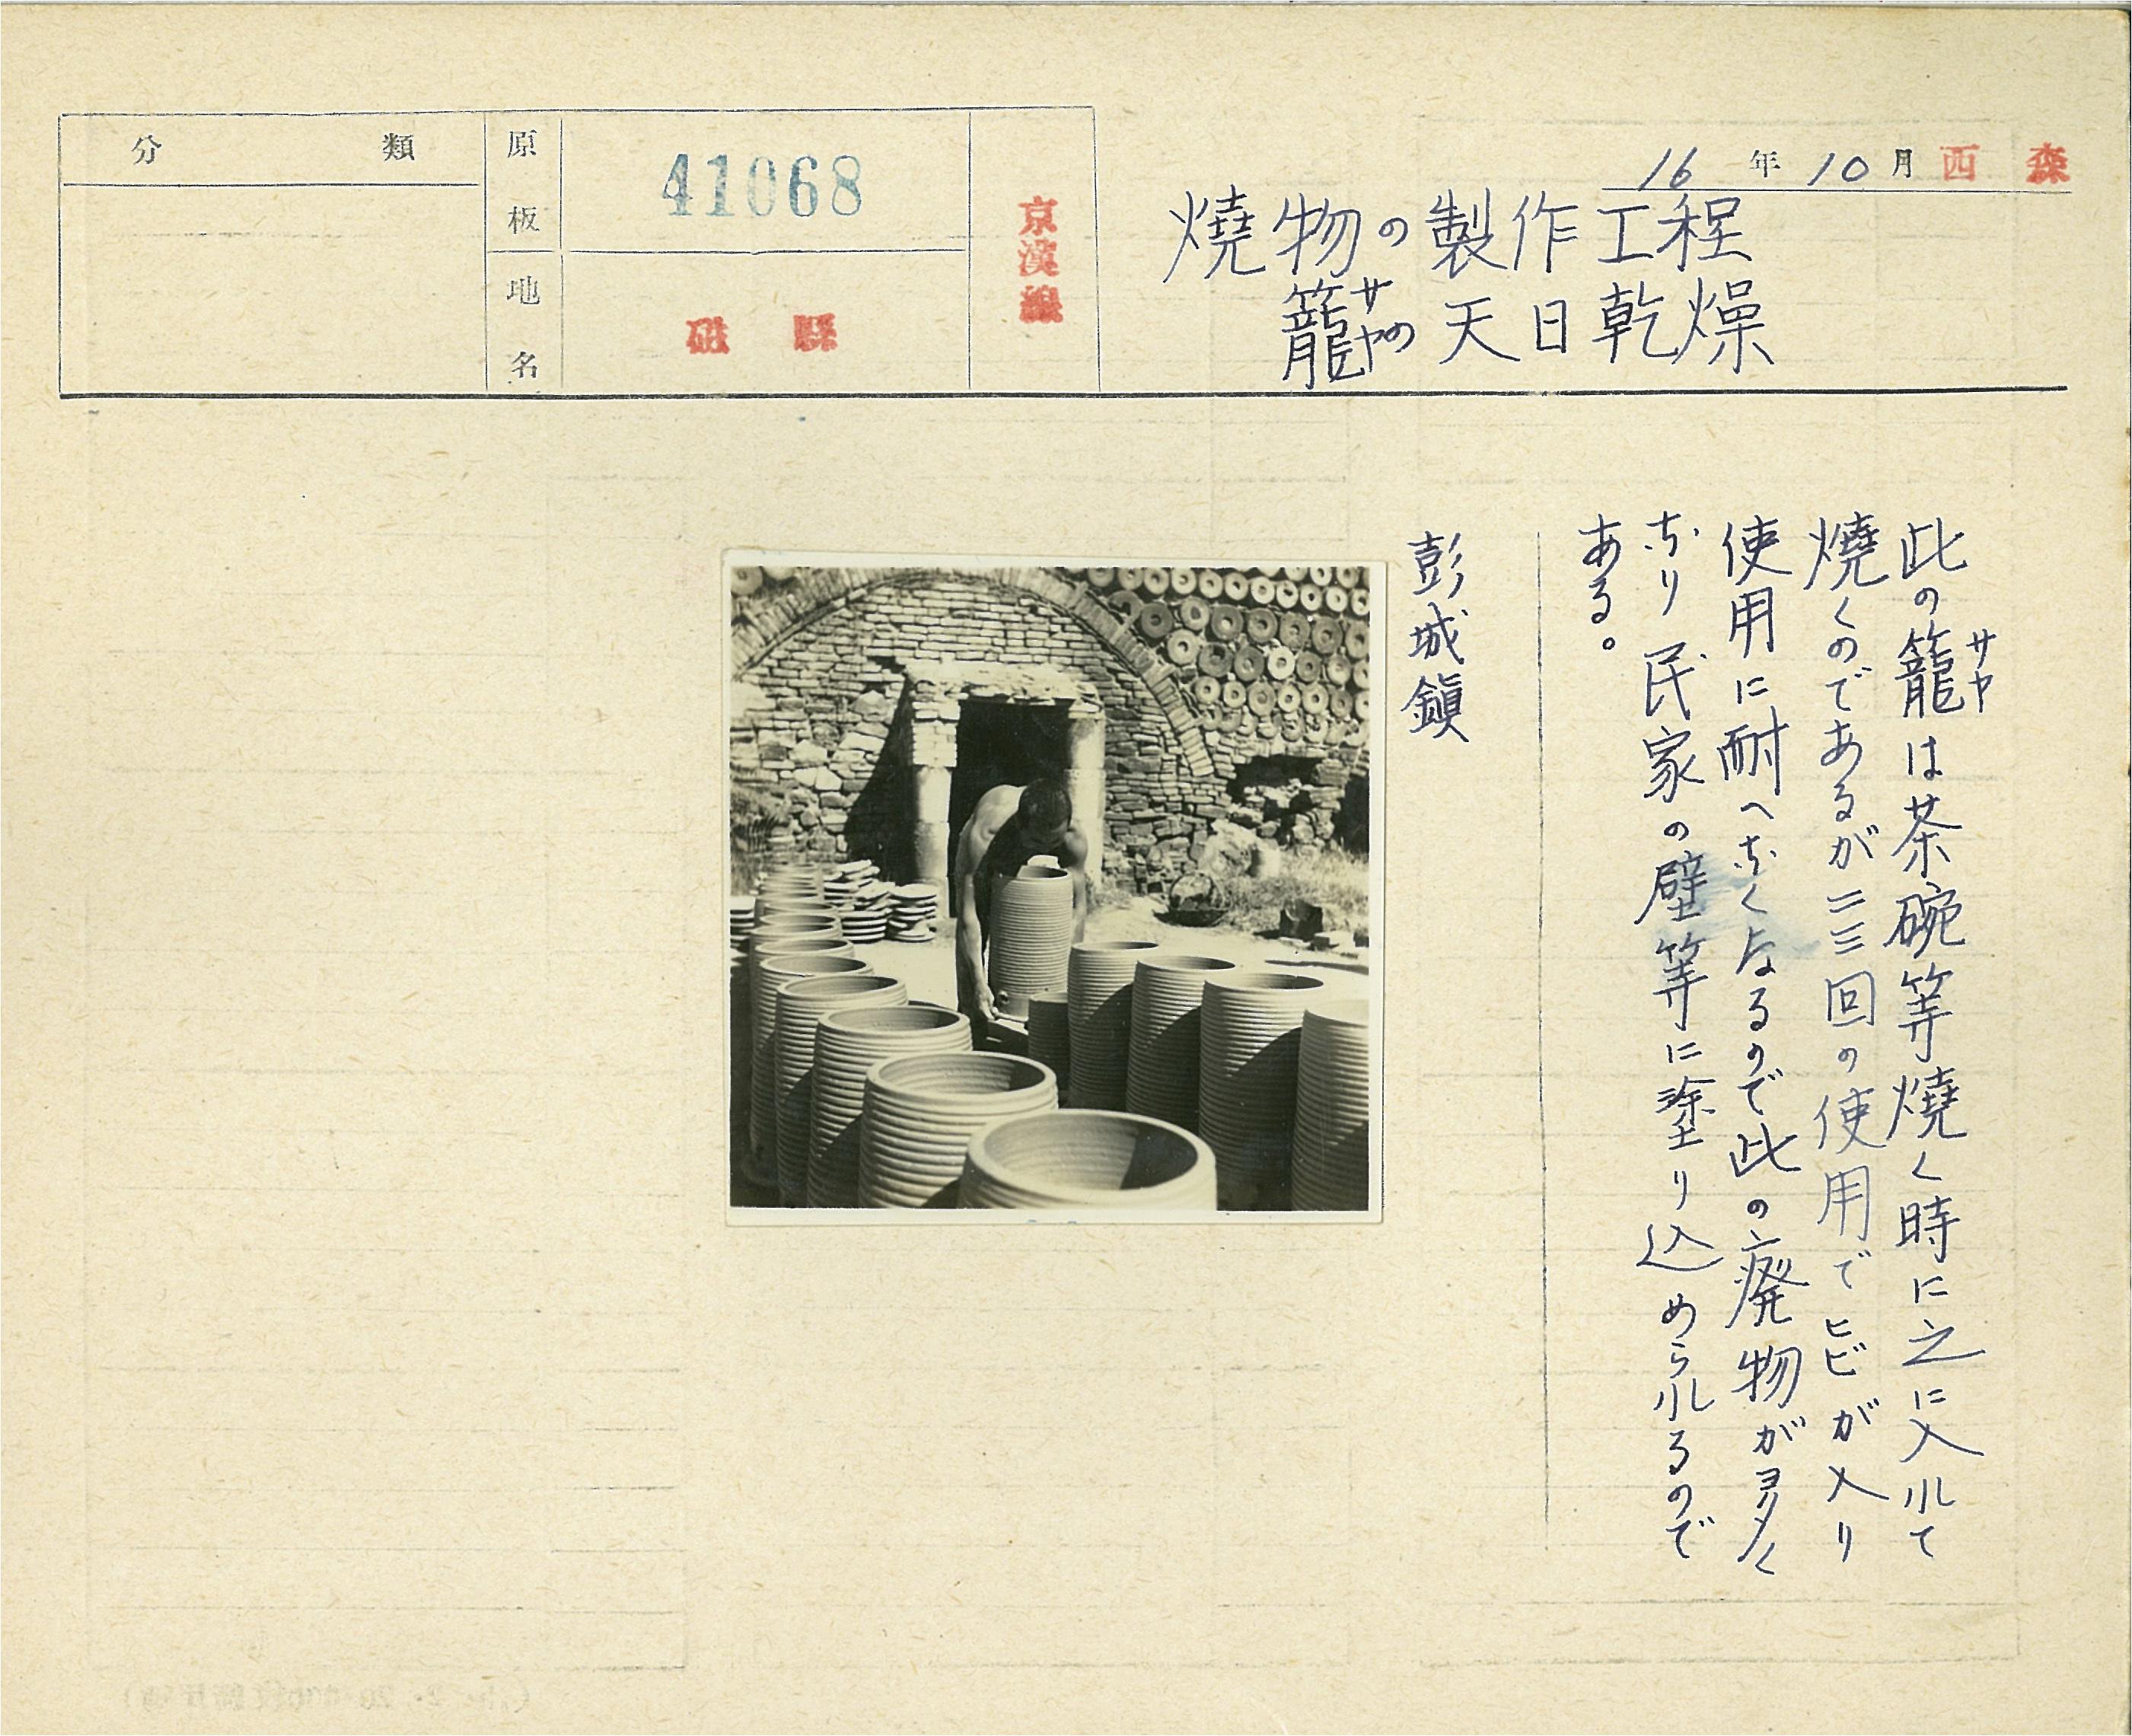 分類
原板
41068
地名
磁縣
京漢線
16年10月 西森
燒物の製作工程
籠サヤの天日乾燥
此の籠サヤは茶碗等燒く時に之に入れて
燒くのであるが二三回の使用でヒビが入り
使用に耐へなくなるので此の廃物が多く
なり民家の壁等に塗り込められるので
ある。
彭城鎭